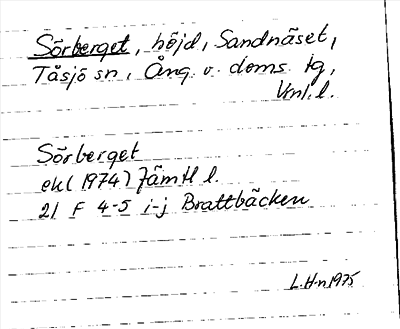 Sörberget, höjd, Sandnäset,
Tåsjö sn, Ång. v. doms. tg,
Vnl. l.
Sörberget
ek (1974) Jämtl l.
21 F 4-5 i-j Brattbäcken
L.H-n 1975